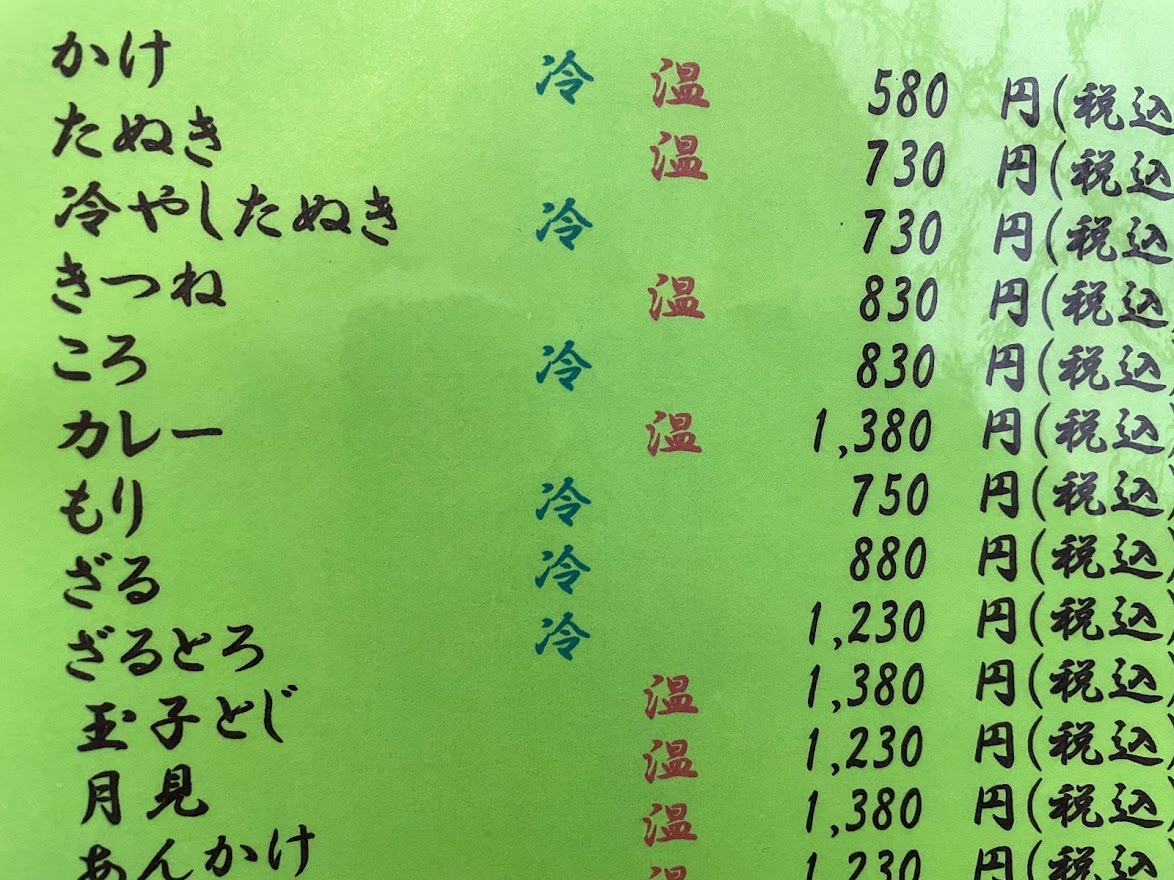 かけ 冷 温 580 円(税込
たぬき 温 730 円(税込
冷やしたぬき 冷 730 円(税込
きつね 温 830 円(税込
ころ 冷 830 円(税込)
カレー 温 1,380 円(税込)
もり 冷 750 円(税込)
ざる 冷 880 円(税込)
ざるとろ 冷 1,230 円(税込)
玉子とじ 温 1,380 円(税込)
月見 温 1,230 円(税込)
あんかけ 温 1,380 円(税込)
温 1,230 円(税込)